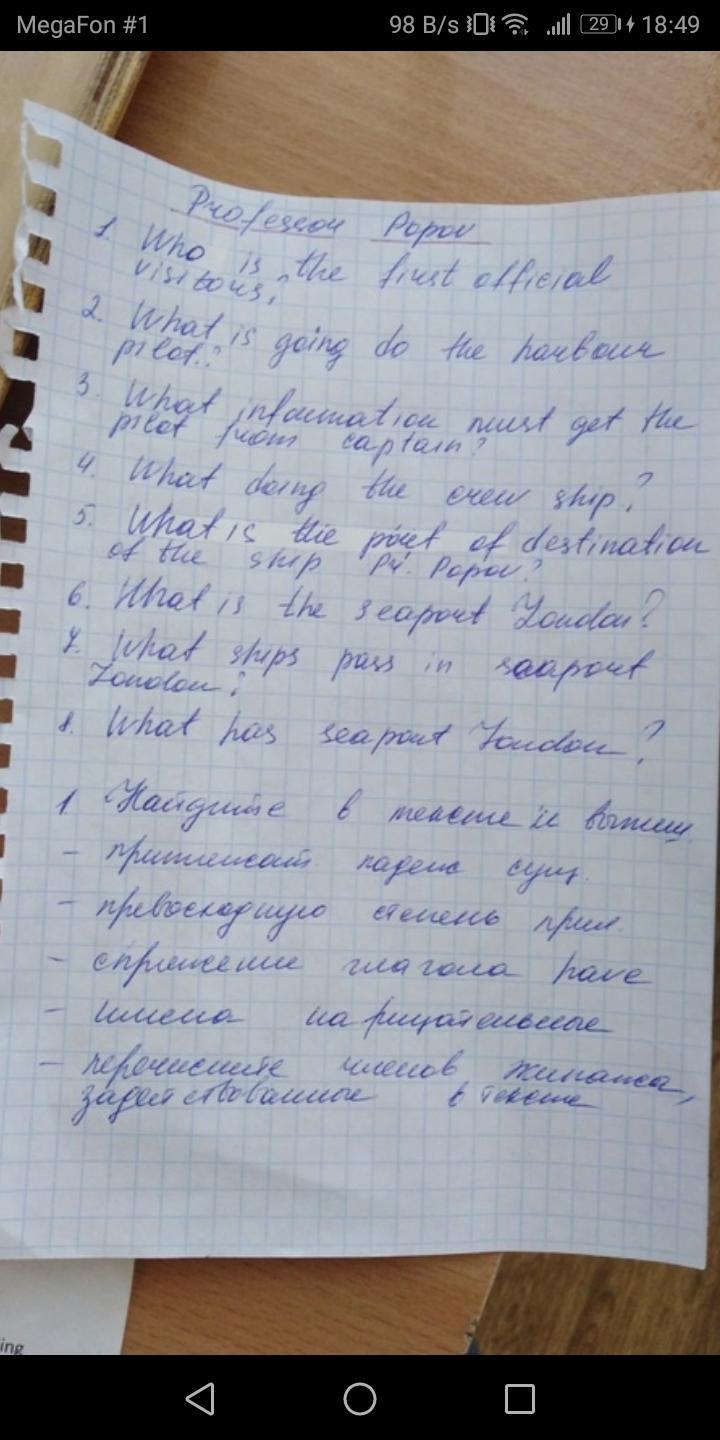 MegaFon #1 98 B/s 29 18:49
Professor Popov
1. Who is the first official
visitors?
2. What is going do the harbour
pilot?
3. What information must get the
pilot from captain?
4. What doing the crew ship?
5. What is the port of destination
of the ship Pr. Popov?
6. What is the seaport London?
7. What ships pass in seaport
London?
8. What has seaport London?
1. Найдите в тексте и выпиш.
- притяжат падеж сущ.
- превосходную степень прил.
- спряжение глагола have
- имена нарицательные
- перечислите членов экипажа,
задействованные в тексте
ing